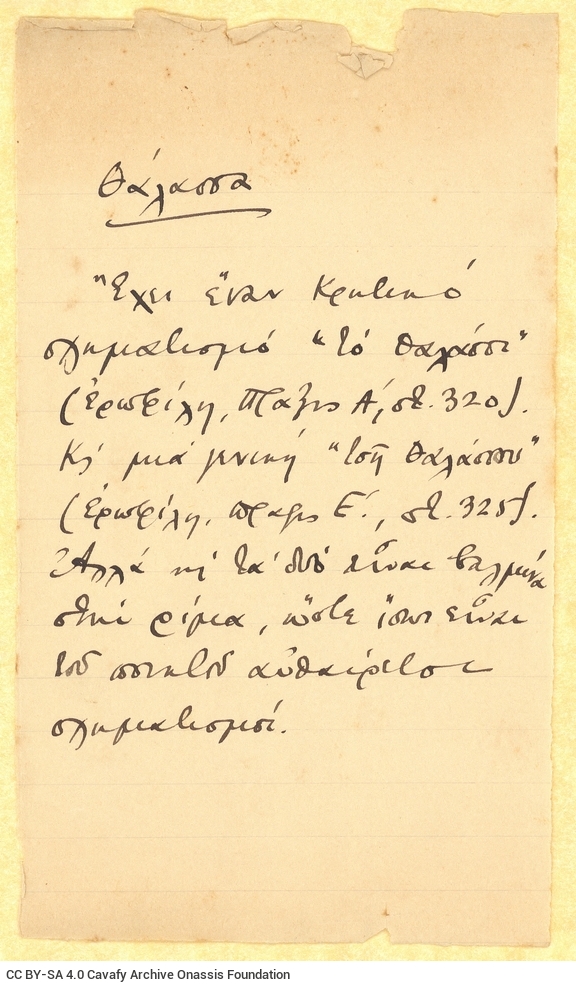 θάλασσα
Ἔχει ἕναν Κρητικό
σχηματισμό "τό θαλάσσι"
(Ἐρωφίλη, Πρᾶξις Α΄, στ. 320).
Κι μιά γενική "τσῆ θαλάσσου"
(Ἐρωφίλη, πρᾶξις Ε΄., στ. 325).
Ἀλλά κι τά δυό εἶναι βαλμένα
στήν ρίμα, ὥστε ἴσως εἶναι
τοῦ ποιητοῦ αὐθαίρετοι
σχηματισμοί.
CC BY-SA 4.0 Cavafy Archive Onassis Foundation